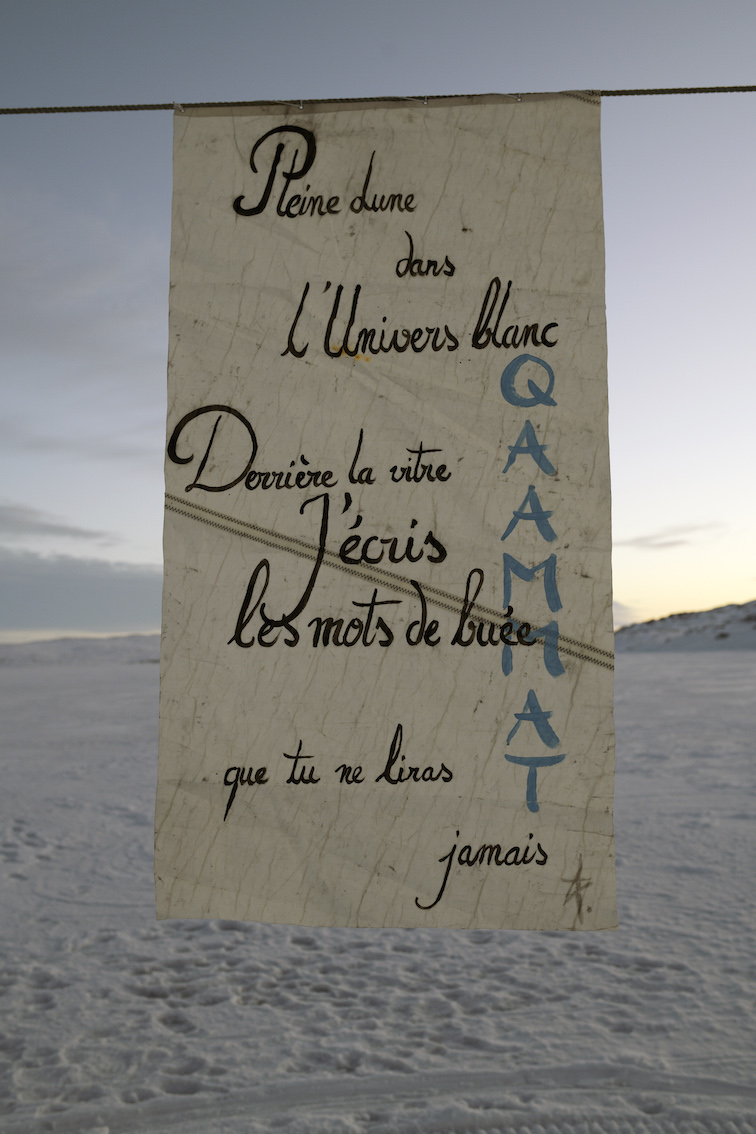 Pleine Lune
dans
l'Univers blanc
Derrière la vitre
J'écris
les mots de buée
que tu ne liras
jamais
QAAMMAT